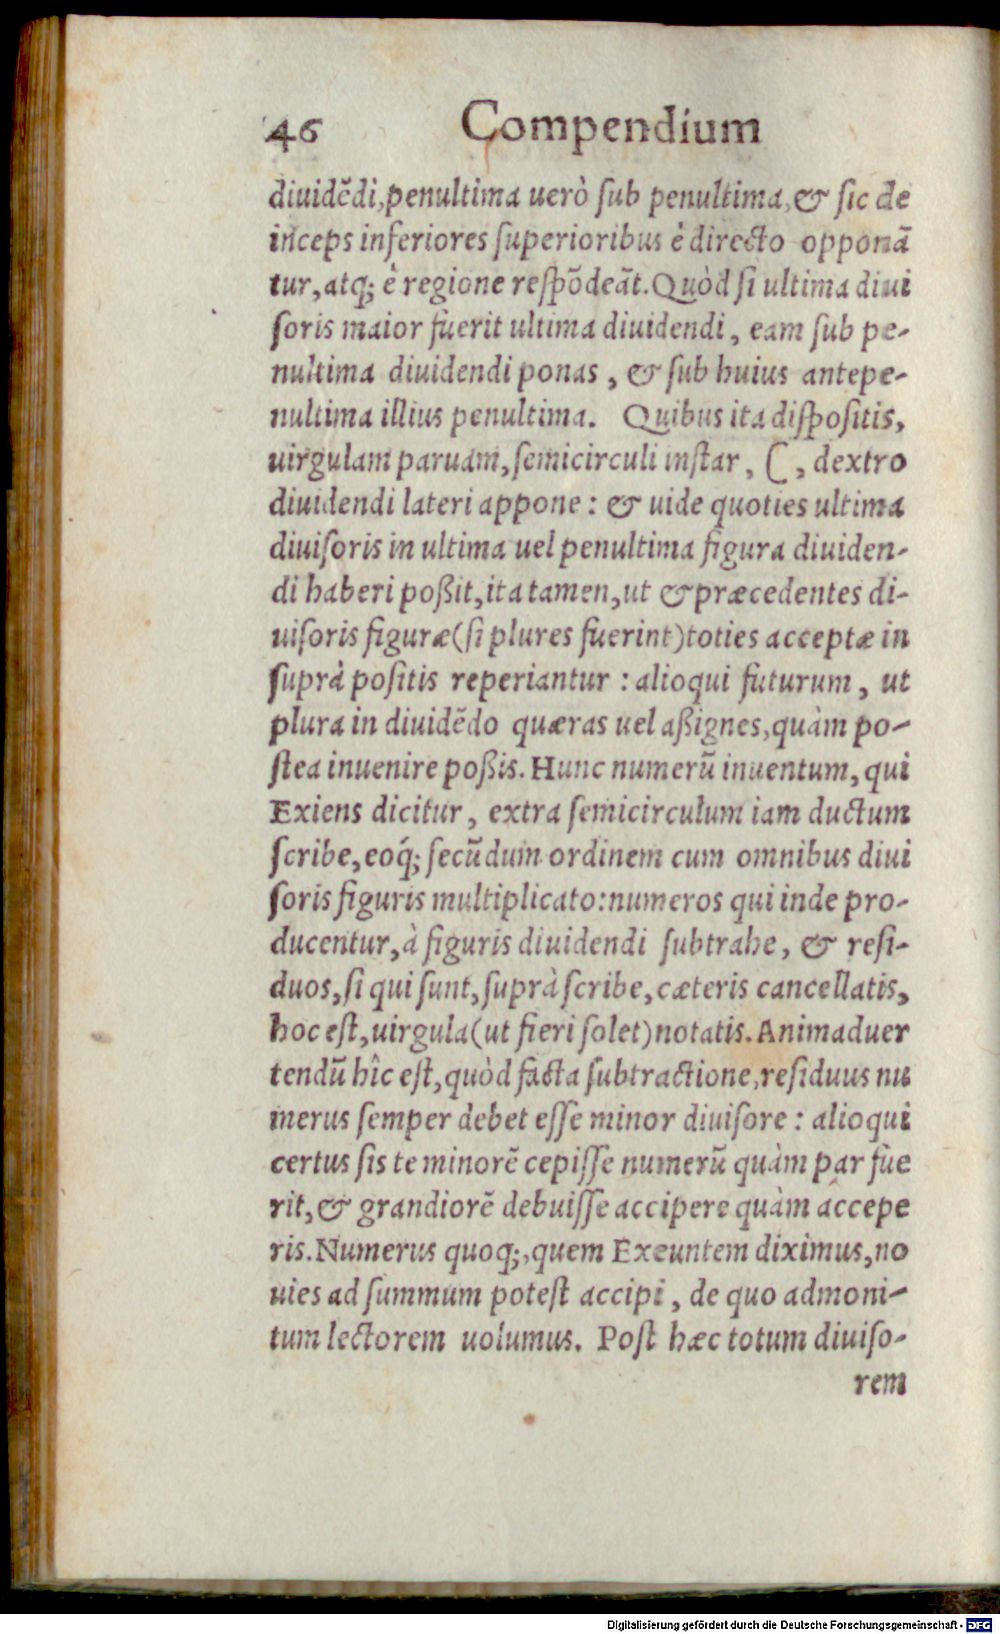 46 Compendium
diuidẽdi, penultima uerò ſub penultima, & ſic de
inceps inferiores ſuperioribus è directo opponã
tur, atq; è regione reſpõdeãt. Quòd ſi ultima diui
ſoris maior fuerit ultima diuidendi, eam ſub pe-
nultima diuidendi ponas, & ſub huius antepe-
nultima illius penultima. Quibus ita diſpoſitis,
uirgulam paruam, ſemicirculi inſtar, (, dextro
diuidendi lateri appone: & uide quoties ultima
diuiſoris in ultima uel penultima figura diuiden-
di haberi poßit, ita tamen, ut & præcedentes di-
uiſoris figuræ (ſi plures fuerint) toties acceptæ in
ſuprà poſitis reperiantur: alioqui futurum, ut
plura in diuidẽdo quæras uel aßignes, quàm po-
ſtea inuenire poßis. Hunc numerũ inuentum, qui
Exiens dicitur, extra ſemicirculum iam ductum
ſcribe, eoq́; ſecũdum ordinem cum omnibus diui
ſoris figuris multiplicato: numeros qui inde pro-
ducentur, à figuris diuidendi ſubtrahe, & reſi-
duos, ſi qui ſunt, ſuprà ſcribe, cæteris cancellatis,
hoc eſt, uirgula (ut fieri ſolet) notatis. Animaduer
tendũ hîc eſt, quòd facta ſubtractione, reſiduus nu
merus ſemper debet eſſe minor diuiſore: alioqui
certus ſis te minorẽ cepiſſe numerũ quàm par fue
rit, & grandiorẽ debuiſſe accipere quàm accepe
ris. Numerus quoq;, quem Exeuntem diximus, no
uies ad ſummum poteſt accipi, de quo admoni-
tum lectorem uolumus. Poſt hæc totum diuiſo-
rem
Digitalisierung gefördert durch die Deutsche Forschungsgemeinschaft - DFG